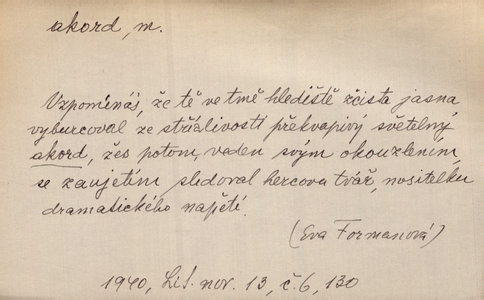 akord, m.
Vzpomínáš, že tě ve tmě hlediště zčista jasna
vyburcoval ze střílivosti překvapivý světelný
akord, žes potom, veden svým okouzlením,
se zaujetím sledoval hercovu tvář, nositelku
dramatického napětí.
(Eva Formanová)
1940, Lid. nov. 13, č. 6, 130